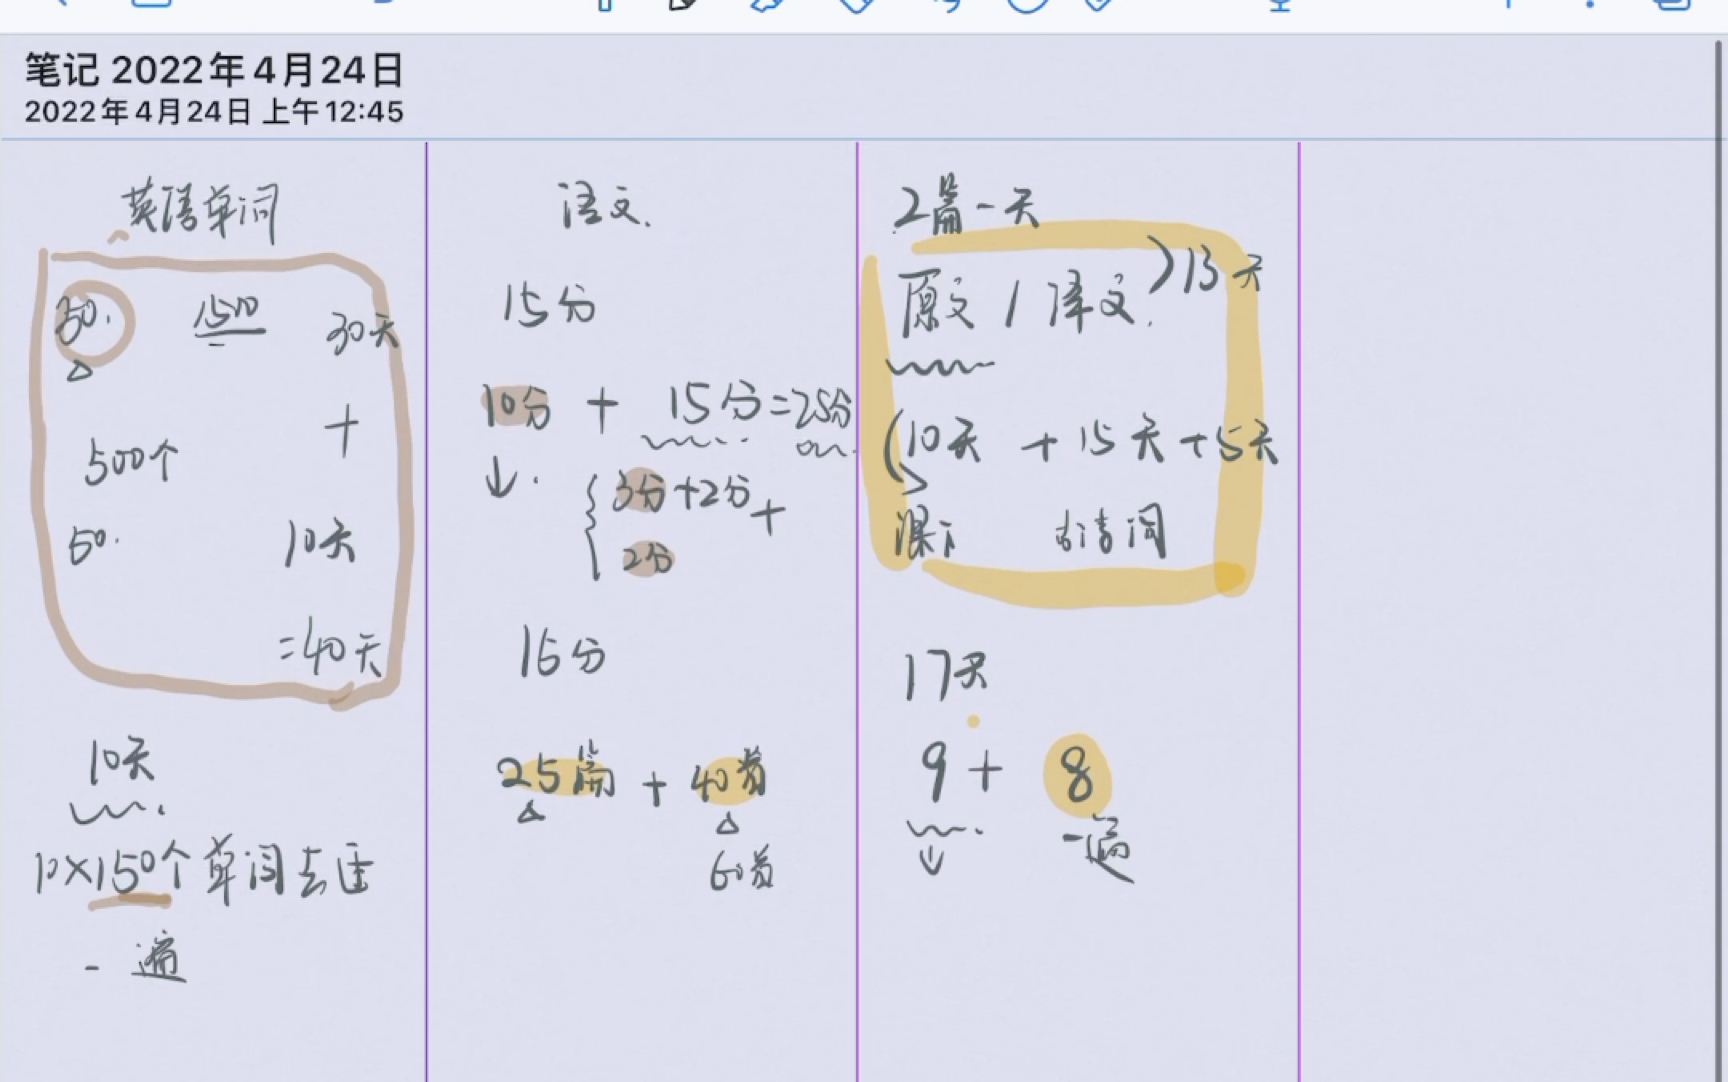 笔记 2022年4月24日
2022年4月24日 上午12:45
英语单词
50. 1500 30天
+
500个
50. 10天
=40天
10天
10×150个单词去过
一遍
语文.
15分
10分 + 15分=25分
3分+2分+
2分
15分
25篇 + 40首
60首
2篇一天
原文 / 译文. >13天
(10天 + 15天+5天
课下 古诗词
17天
9+ 8
一遍